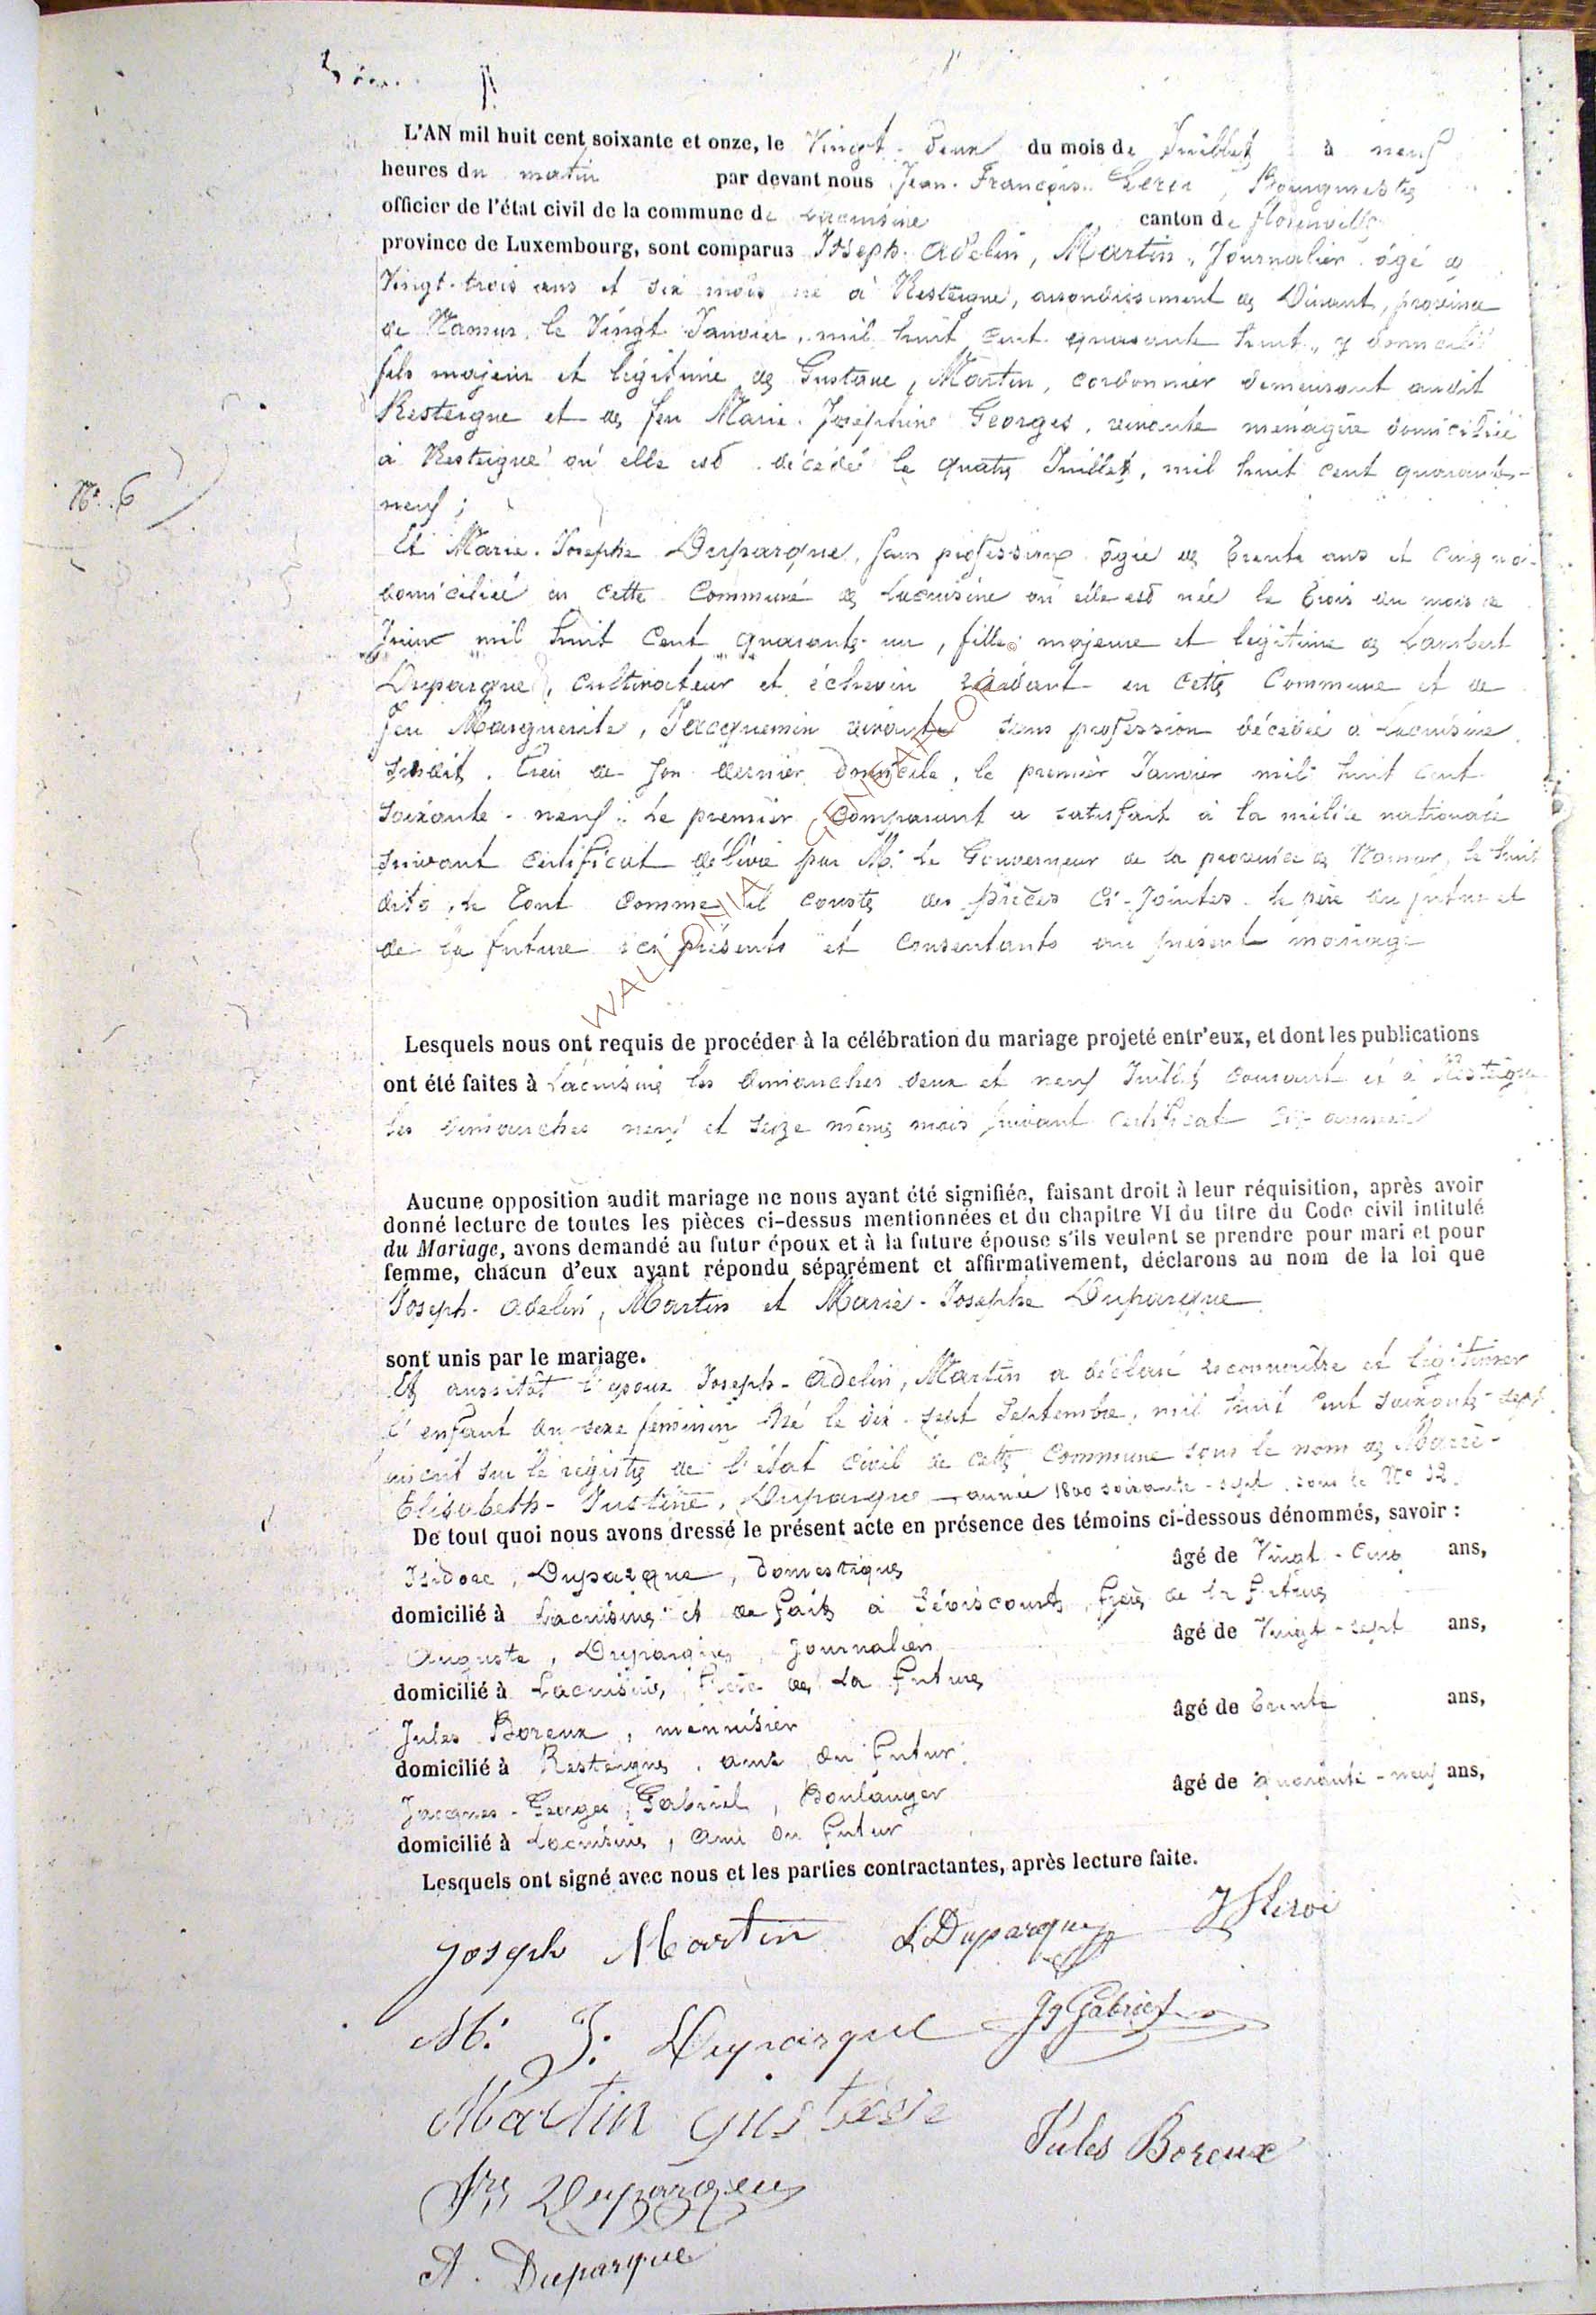 L'AN mil huit cent soixante et onze, le Vingt-deux du mois de Juillet à neuf
heures du matin par devant nous Jean-François Leroi, Bourgmestre
officier de l'état civil de la commune de Lacuisine canton de florenville
province de Luxembourg, sont comparus Joseph-Adelin, Martin, Journalier âgé de
Vingt-trois ans et six mois né à Resteigne, arrondissement de Dinant, province
de Namur, le Vingt Janvier, mil huit cent quarante huit, y domicilié
fils majeur et légitime de Gustave, Martin, cordonnier demeurant audit
Resteigne et de feu Marie-Joséphine Georges, vivante ménagère domiciliée
à Resteigne où elle est décédée le quatre Juillet, mil huit cent quarante-
neuf;
N° 6
Et Marie-Josephe Duparque, sans profession âgée de trente ans et cinq
domiciliée en cette Commune de Lacuisine où elle est née le trois du mois de
mil huit cent quarante-un, fille majeure et légitime de Lambert
Duparque, cultivateur et échevin résidant en cette Commune et de
feu Marguerite, Jacquemin vivante sans profession décédée à Lacuisine
susdit, lieu de son dernier domicile, le premier Janvier mil huit cent
soixante-neuf. Le premier comparant a satisfait à la milice nationale
suivant certificat délivré par Mr. le Gouverneur de la province de Namur, le huit
dito, le tout comme il conste des pièces ci-jointes. le père du futur et
de la future ici présents et consentants au présent mariage
Lesquels nous ont requis de procéder à la célébration du mariage projeté entr'eux, et dont les publications
ont été faites à Lacuisine les dimanches deux et neuf Juillet courant et à Resteigne
les dimanches neuf et seize même mois suivant certificat ci-annexé
Aucune opposition audit mariage ne nous ayant été signifiée, faisant droit à leur réquisition, après avoir
donné lecture de toutes les pièces ci-dessus mentionnées et du chapitre VI du titre du Code civil intitulé
du Mariage, avons demandé au futur époux et à la future épouse s'ils veulent se prendre pour mari et pour
femme, chacun d'eux ayant répondu séparément et affirmativement, déclarons au nom de la loi que
Joseph-Adelin, Martin et Marie-Josephe Duparque
sont unis par le mariage.
Et aussitôt l'époux Joseph-Adelin, Martin a déclaré reconnaître et légitimer
l'enfant du sexe féminin Né le dix-sept Septembre, mil huit cent soixante-sept
inscrit sur le registre de l'état civil de cette Commune sous le nom de Marie-
Elisabeth-Justine, Duparque année 1800 soixante-sept sous le N° 12.
De tout quoi nous avons dressé le présent acte en présence des témoins ci-dessous dénommés, savoir :
Isidore, Duparque, domestique âgé de Vingt-cinq ans,
domicilié à Lacuisine et de fait à Séviscourt, frère de la future
Auguste, Duparque, Journalier âgé de Vingt-sept ans,
domicilié à Lacuisine, frère de la future
Jules Boreux, menuisier âgé de trente ans,
domicilié à Resteigne, ami du futur
Jacques-Georges, Gabriel, Boulanger âgé de quarante-neuf ans,
domicilié à Lacuisine, ami du futur
Lesquels ont signé avec nous et les parties contractantes, après lecture faite.
Joseph Martin L Duparque JfLeroi
M. J. Duparque Jg Gabriel
Martin gustave Jules Boreux
Duparque
A. Duparque
WALLONIA GENEANET.ORG